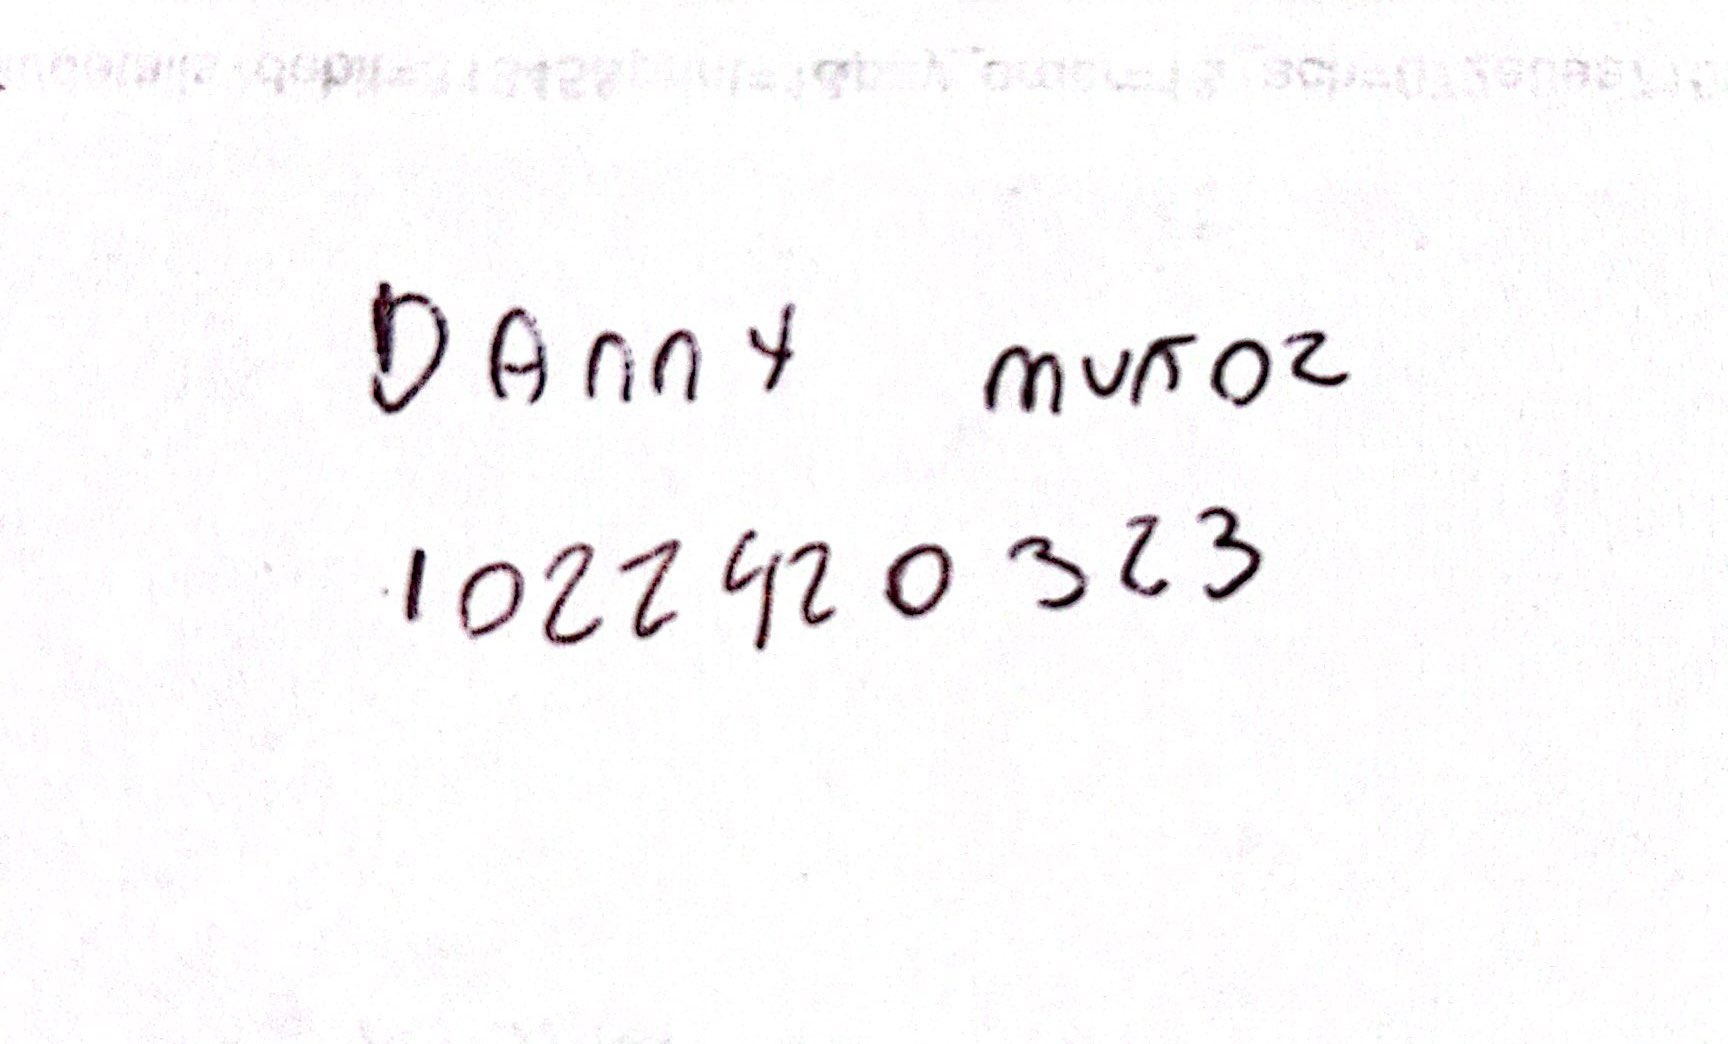 DAnny muñoz
1022420323